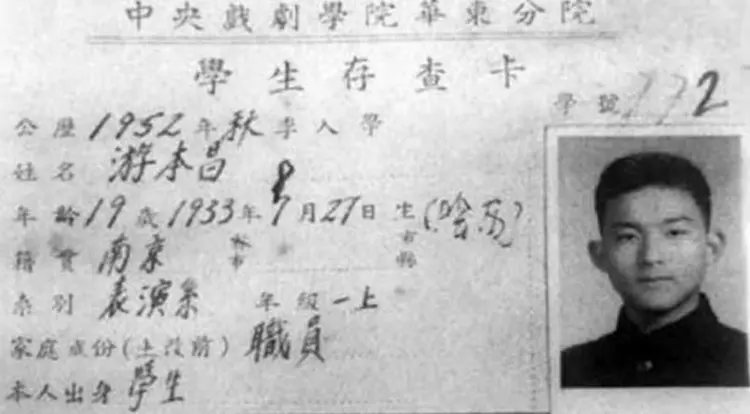 中央戲劇學院華東分院
學生存查卡
學號 172
公歷1952年秋季入學
姓名 游本昌
年齡19歲1933年8月27日生
籍貫 南京 省市縣
系別 表演系 年級 一上
家庭成份(土改前) 職員
本人出身 學生